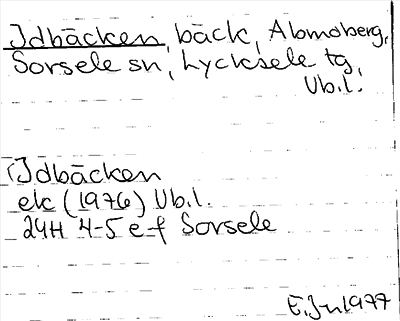 Idbäcken, bäck, Abmoberg,
Sorsele sn, Lycksele tg,
Vb.l.
Idbäcken
ek (1976) Vb.l.
24H 4-5 e-f Sorsele
E.Jn 1977